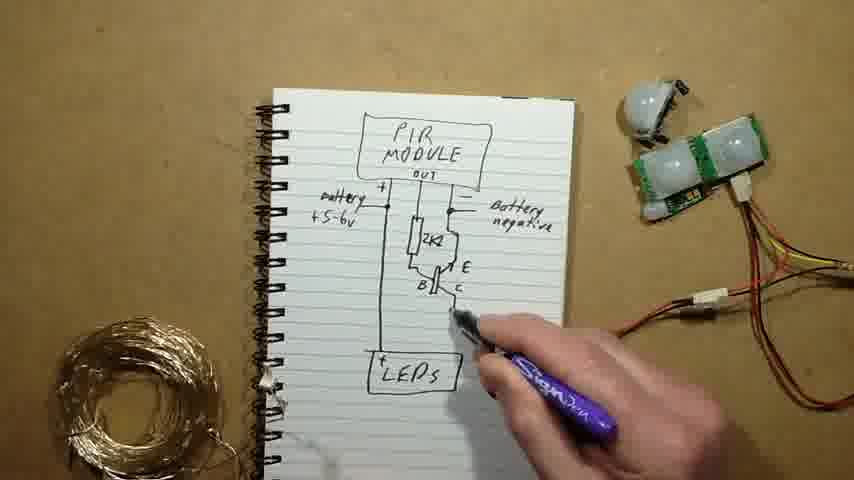 PIR
MODULE
OUT
+ −
Battery
+5-6v
Battery
negative
2K2
E
B C
+
LEDs